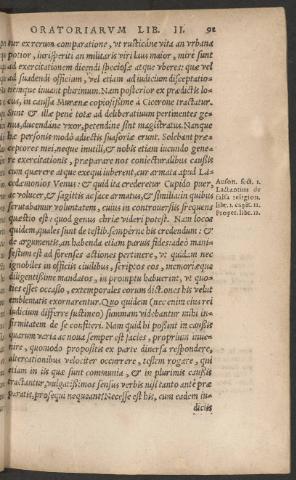 ORATORIARVM LIB. II. 91
tur ex rerum comparatione, vt rusticáne vita an vrbana
potior, iurisperiti an militaris viri laus maior, mirè sunt
ad exercitationem dicendi speciosæ atque vberes: quæ vel
ad suadendi officium, vel etiam ad iudiciũ disceptatio-
nemque iuuant plurimum. Nam posterior ex prædictis lo-
cus, in caussa Murenæ copiosissimè à Cicerone tractatur.
Sunt & illæ penè totæ ad deliberatiuum pertinentes ge-
nus, ducendáne vxor, petendine sint magistratus. Namque
hæ personis modò adiectis suasoriæ erunt. Solebant præ-
ceptores mei, neque inutili, & nobis etiam iucundo gene-
re exercitationis, præparare nos coniecturalibus caussis
cum quærere atque exequi iuberent, cur armata apud La-
cedæmonios Venus: & quid ita crederetur Cupido puer,
ac volucer, & sagittis ac face armatus, & similia: in quibus
scrutabamur voluntatem, cuius in controuersiis frequens
quæstio est: quod genus chriæ videri potest. Nam locos
quidem, quales sunt de testib. sempérne his credendum: &
de argumentis, an habenda etiam paruis fides: adeò mani-
festum est ad forenses actiones pertinere, vt quidam nec
ignobiles in officiis ciuilibus, scriptos eos, memoriæque
diligentissimè mandatos, in promptu habuerint, vt quo-
ties esset occasio, extemporales eorum dictiones his velut
emblematis exornarentur. Quo quidem (nec enim eius rei
iudicium differre sustineo) summam videbantur mihi in-
firmitatem de se confiteri. Nam quid hi possint in caussis
quarum varia ac noua semper est facies, proprium inue-
nire, quomodo propositis ex parte diuersa respondere,
altercationibus velociter occurrere, testem rogare, qui
etiam in iis quæ sunt communia, & in plurimis caussis
tractantur, vulgatissimos sensus verbis nisi tanto antè præ-
paratis, prosequi nequeant? Necesse est his, cum eadem in-
diciis
Auson. sect. 1.
Lactantius de
falsa religion.
libr. 1. capit. 11.
Proper. libr. 11.